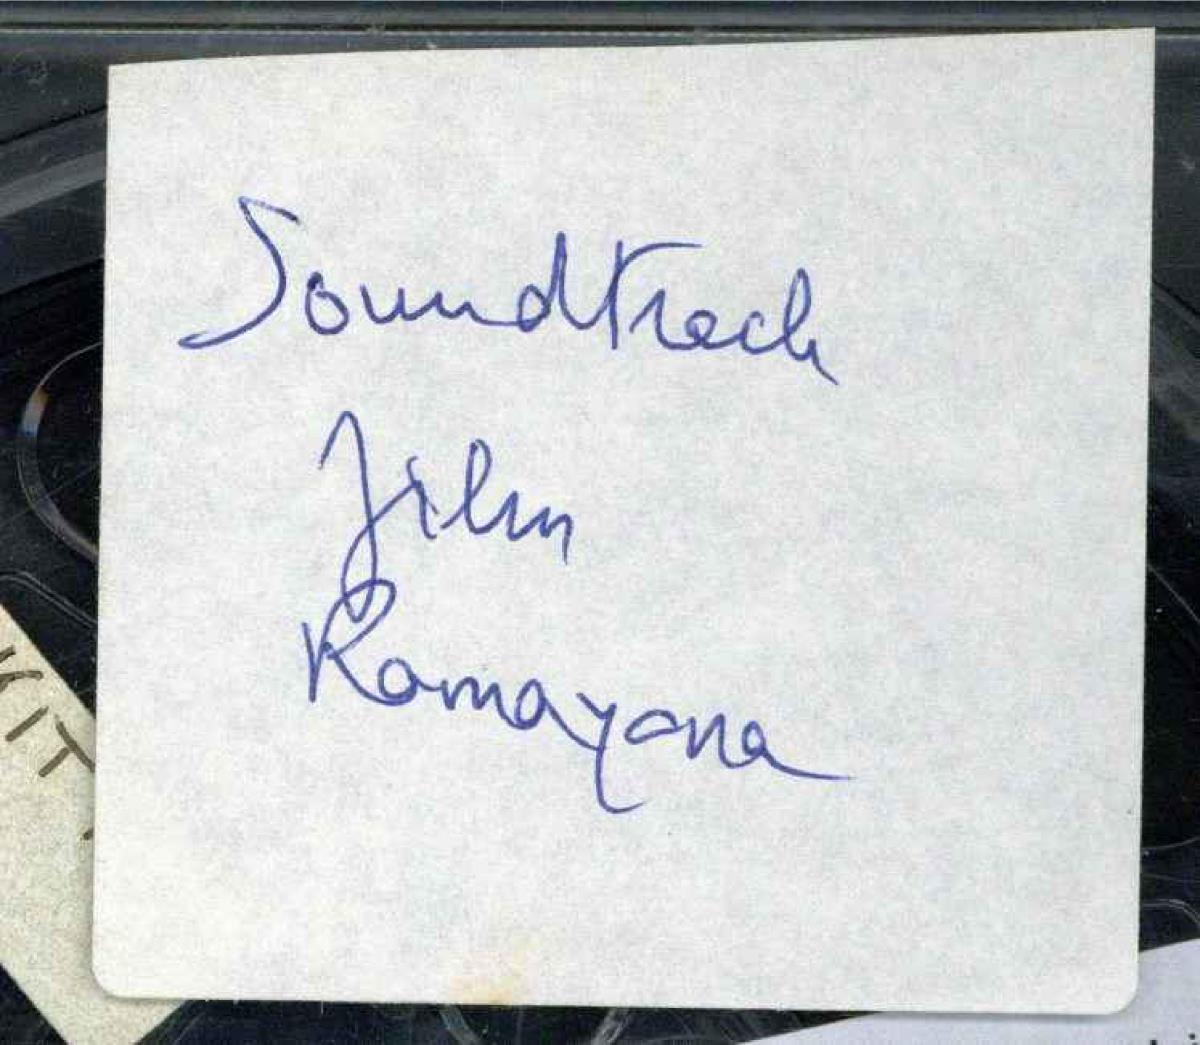 Soundtrack
Film
Ramayana
KIT